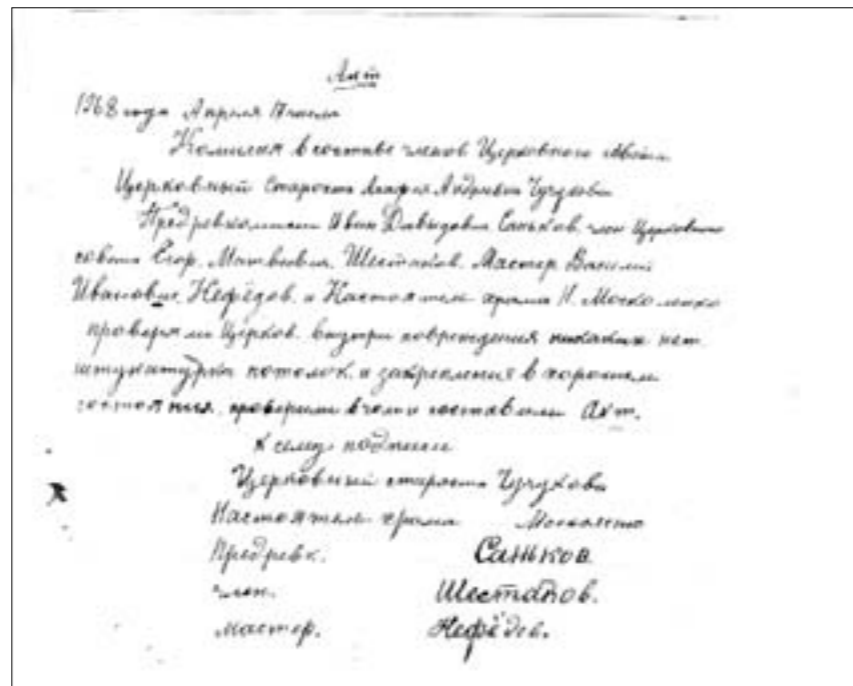 Акт
1968 года Апреля 17 числа
Комисия в составе членов Церковного совета
Церковный староста Агафия Андреевна Чучукова
Предревкомиссии Иван Давыдович Саньков. член Церковного
совета Егор. Матвеевич. Шестаков. Мастер Василий
Иванович. Нефёдов. и Настоятель храма Н. Москаленко
проверяли Церков. внутри повреждения никаких нет.
штукатурка потолок. и закрепления в хорошем
состояния. проверили в чем и составили Акт.
к сему подписи
Церковный староста Чучукова
Настоятель храма Москаленко
Предревк. Саньков.
член. Шестаков.
мастер. Нефёдов.